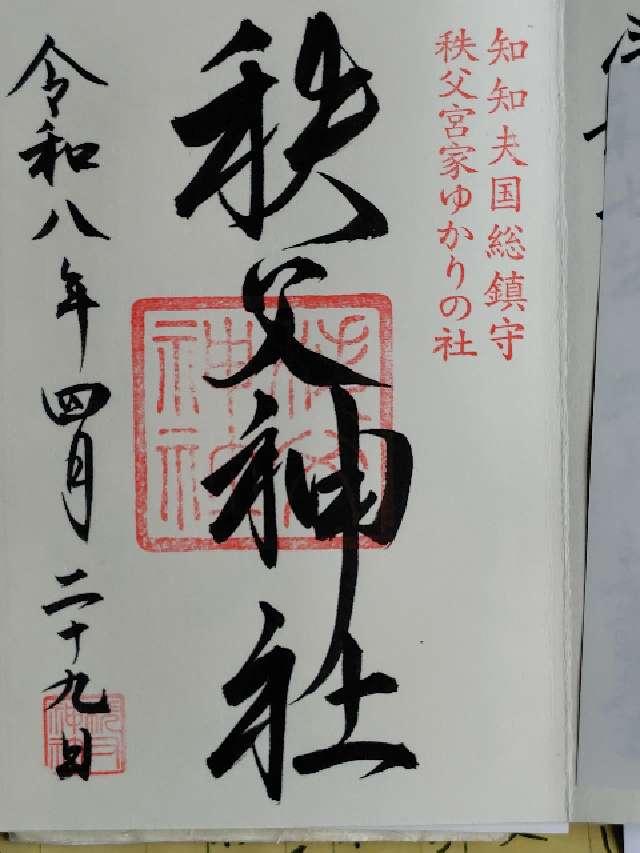 知知夫国総鎮守
秩父宮家ゆかりの社
秩父神社
令和八年四月二十九日
秩父神社